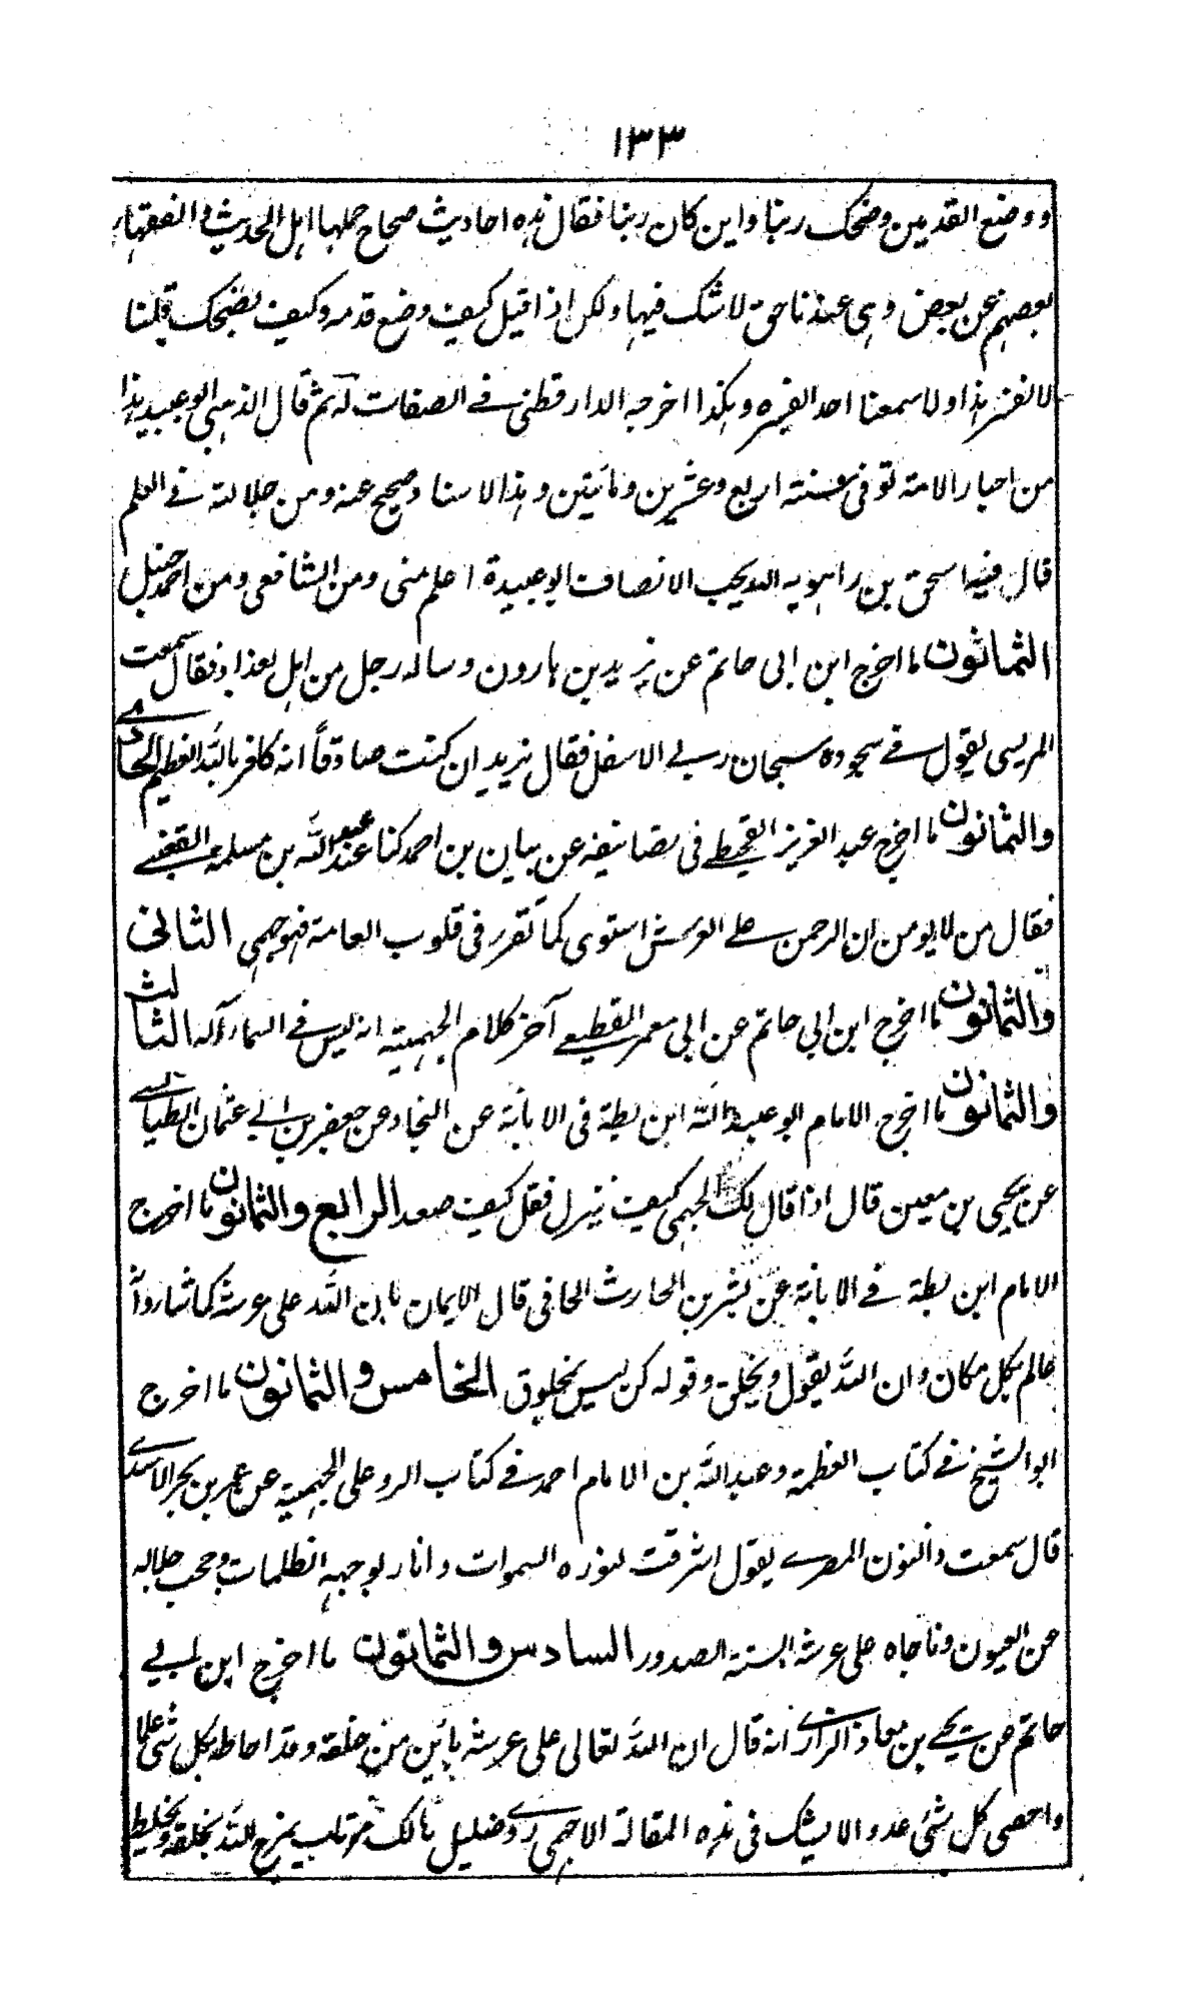 ١٣٣
ووضع القدمين وضحك ربنا واين كان ربنا فقال هذه احاديث صحاح حملها اهل الحديث و الفقهاء
بعضهم عن بعض وهى عندنا حق لا شك فيها ولكن اذا قيل كيف وضع قدمه وكيف يضحك قلنا
لا نفسر هذا ولا سمعنا احدا يفسره وهكذا اخرجه الدارقطنى فى الصفات له ثم قال الذهبى ابو عبيد هذا
من احبار الامة توفى سنة اربع وعشرين ومائتين وهذا الاسناد صحيح عنه ومن جلالته فى العلم
قال فيه اسحق بن راهويه الله يحب الانصاف ابو عبيدة اعلم منى ومن الشافعى ومن احمد حنبل
الثمانون ما اخرج ابن ابى حاتم عن يزيد بن هارون وساله رجل من اهل بغداد فقال سمعت
المريسى يقول فى سجوده سبحان ربى الاسفل فقال يزيد ان كنت صادقاً انه كافر بالله العظيم الحادى
والثمانون ما اخرج عبد العزيز القحيطى فى تصانيفه عن بيان بن احمد كنا عند عبد الله بن مسلمة القعنبى
فقال من لا يومن ان الرحمن على العرش استوى كما تقرر فى قلوب العامة فهو جهمى الثانى
والثمانون ما اخرج ابن ابى حاتم عن ابى معمر القطيعى آخر كلام الجهمية انه ليس فى السماء آله الثالث
والثمانون ما اخرج الامام ابو عبد الله ابن بطة فى الابانة عن النجاد عن جعفر بن ابى عثمان الطيالسى
عن يحيى بن معين قال اذا قال لك الجهمى كيف ينزل فقل كيف صعد الرابع والثمانون ما اخرج
الامام ابن بطة فى الابانة عن بشر بن الحارث الحافى قال الايمان بان الله على عرشه كما شاء وانه
عالم بكل مكان وان الله يقول ويخلق وقوله كن ليس بمخلوق الخامس والثمانون ما اخرج
ابو الشيخ فى كتاب العظمة وعبد الله بن الامام احمد فى كتاب الرد على الجهمية عن عمر بن بحر الاسدى
قال سمعت ذا النون المصرى يقول اشرقت لنوره السموات وانار لوجهه الظلمات وحجب جلاله
عن العيون وناجاه على عرشه السنة الصدور السادس والثمانون ما اخرج ابن ابى
حاتم عن يحيى بن معاذ الرازى انه قال ان الله تعالى على عرشه بائن من خلقه وقد احاط بكل شئ علما
واحصى كل شئ عددا لا يشك فى هذه المقالة الا جهمى ردى ضليل هالك مرتاب يمزج الله بخلقه ويخلط